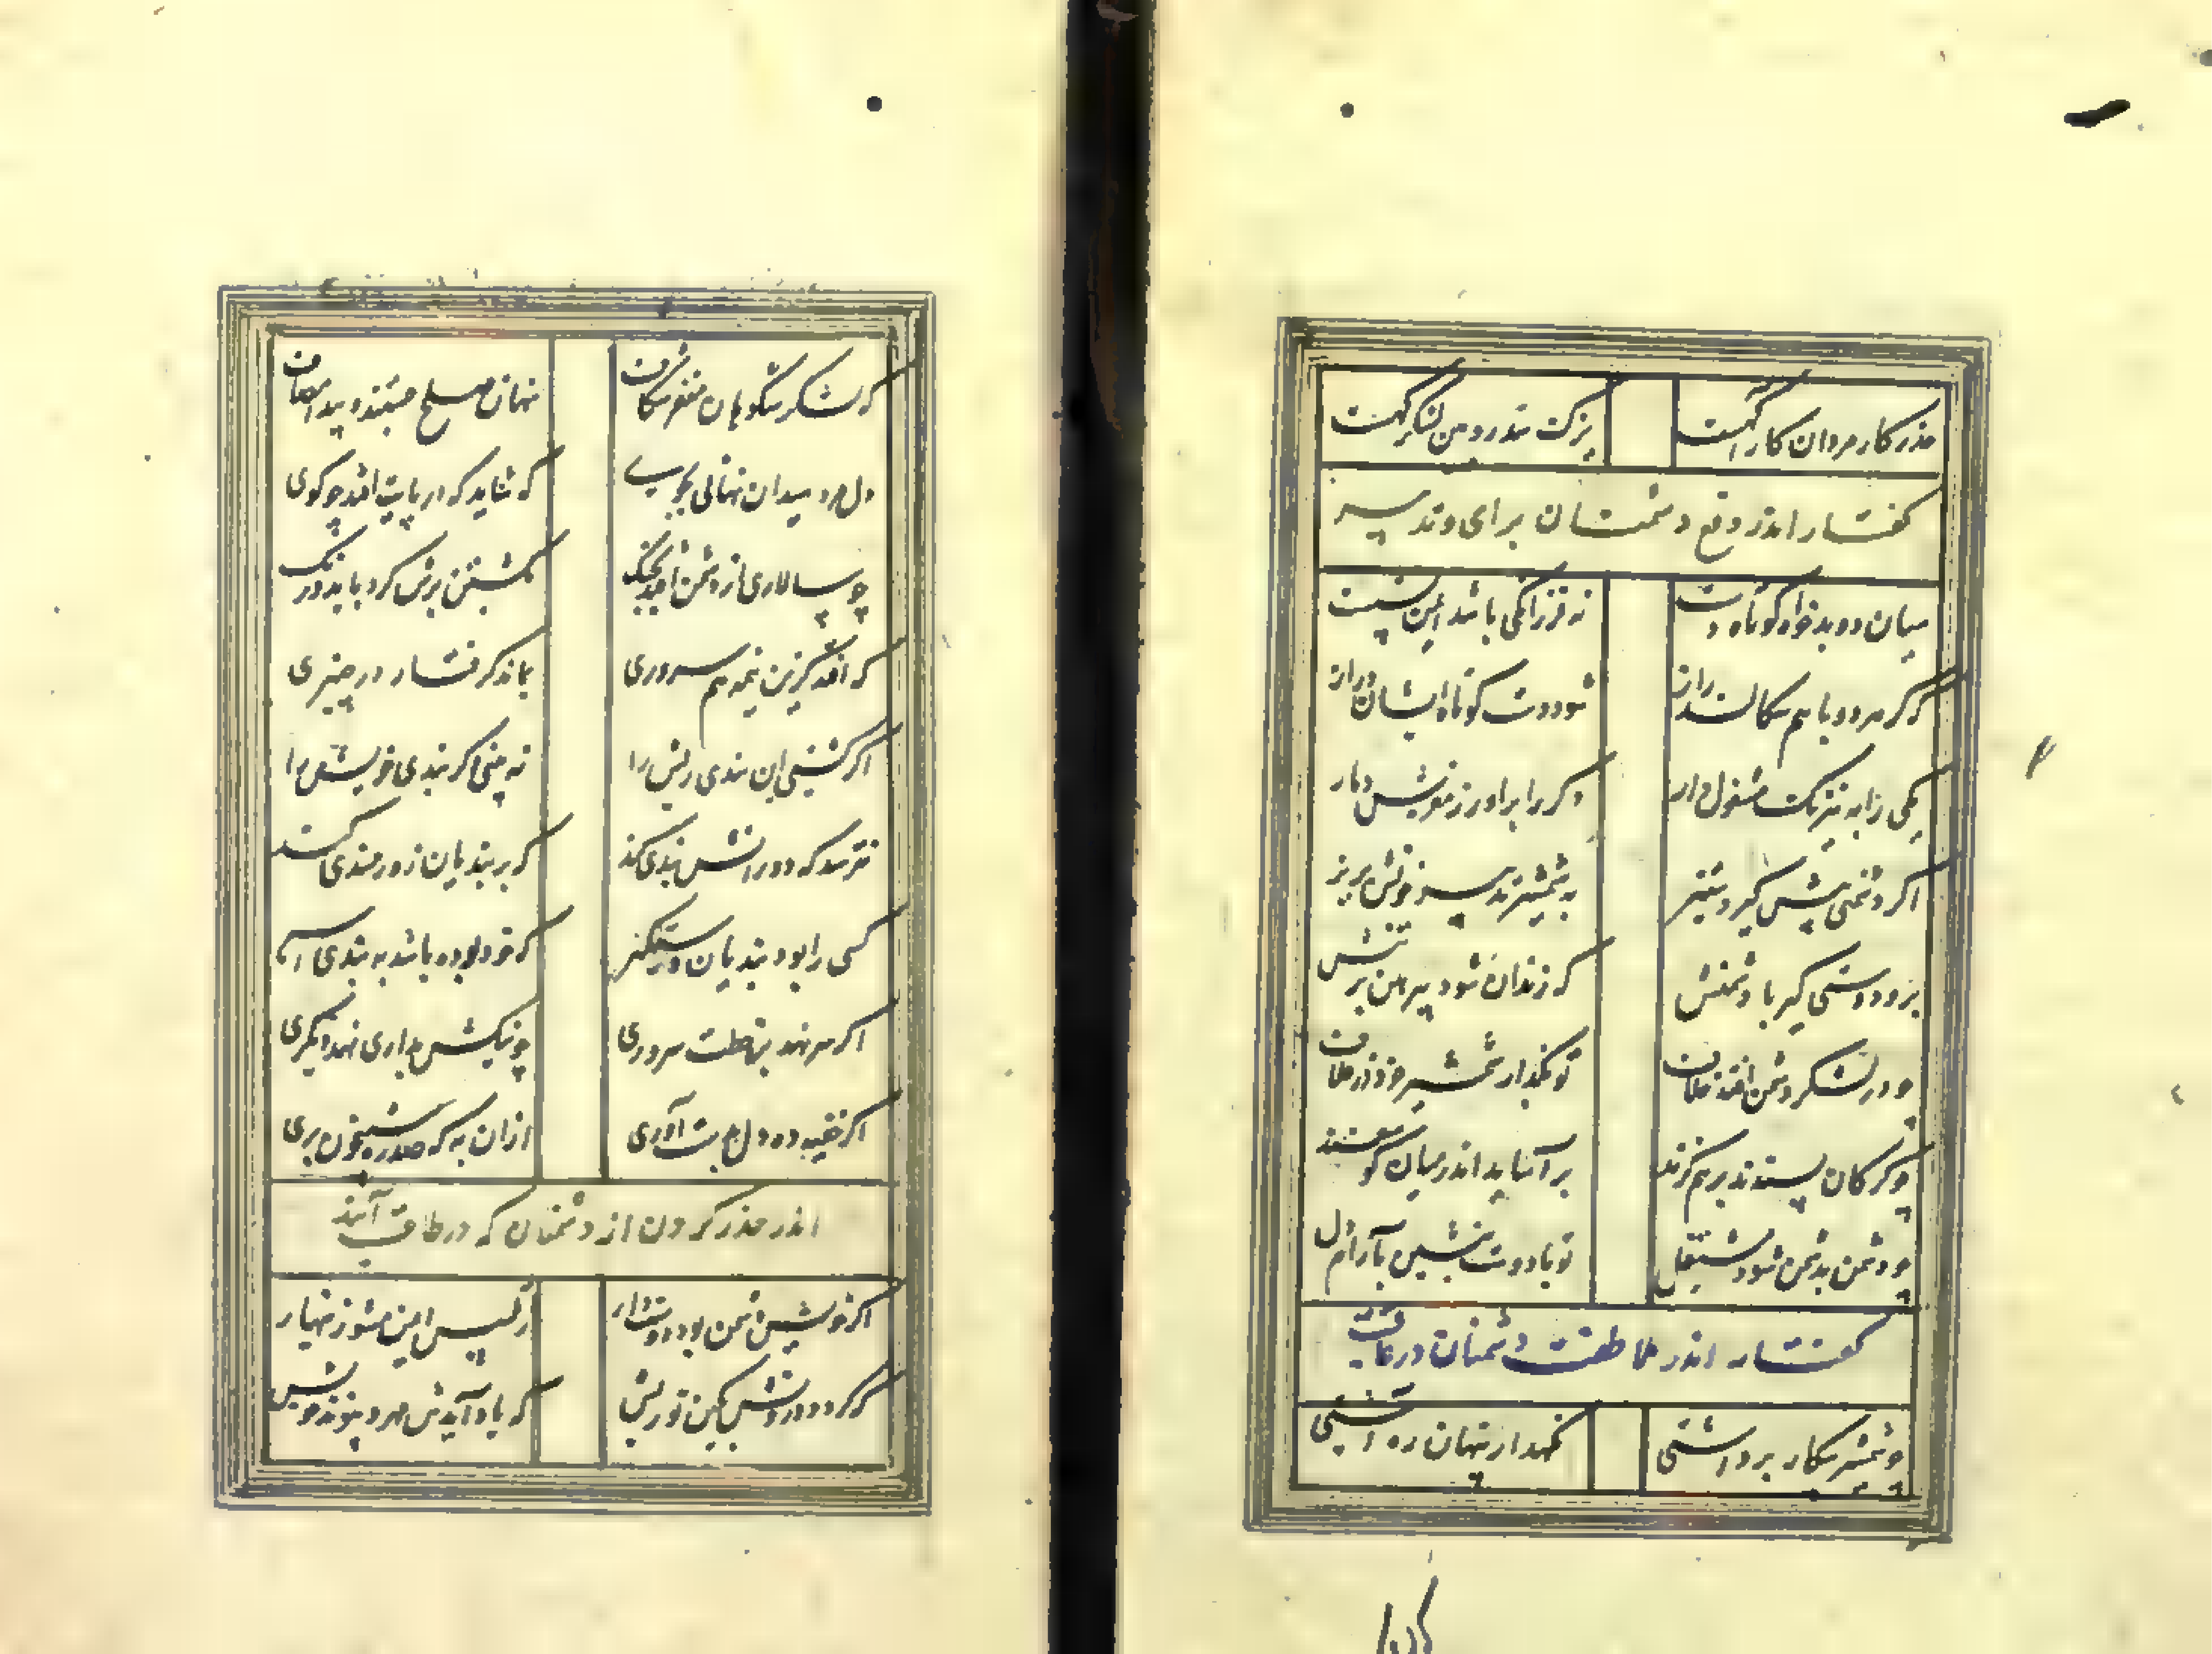 حذر کار مردان کار آگهست یزک سد رویین لشکر گهست
گفتار اندر دفع دشمنان برای و تدبیر
میان دو بدخواه کوتاه دست نه فرزانگی باشد ایمن نشست
که گر هر دو با هم سکالند راز شود دست کوتاه ایشان دراز
یکی را به نیرنگ مشغول دار دگر را برآور ز مغزش دمار
اگر دشمنی پیش گیرد ستیز به شمشیر تدبیر خونش بریز
برو دوستی گیر با دشمنش که زندان شود پیرهن بر تنش
چو در لشکر دشمن افتد خلاف تو بگذار شمشیر خود در غلاف
چو گرگان پسندند بر هم گزند بر آساید اندر میان گوسفند
چو دشمن بدشمن شود مشتغل تو با دوست بنشین بآرام دل
گفتار اندر ملاطفت دشمنان در عاقبت
چو شمشیر پیکار برداشتی نگهدار پنهان ره آشتی
که لشکر شکوفان مغفر شکاف نهان صلح جستند و پیدا مصاف
دل مرد میدان نهانی بجوی که شاید که در پایت افتد چو گوی
چو سالاری از دشمن افتد بچنگ بکشتن برش کرد باید درنگ
که افتد کزین نیمه هم سروری بماند گرفتار در چنبری
اگر کشتی این بندی ریش را نه بینی دگر بندی خویش را
نترسد که دورانش بندی کند که بر بندیان زورمندی کند
کسی بندیان را بود دستگیر که خود بوده باشد به بندی اسیر
اگر سر نهد بر خطت سروری چو نیکش بداری نهد دیگری
اگر خفیه ده دل بدست آوری ازان به که صد ره شبیخون بری
اندر حذر کردن از دشمنان که در طاعت آیند
گرت خویش دشمن بود دوستدار ز تلبیس ایمن مشو زینهار
که گردد درونش بکین تو ریش که یاد آیدش مهر و پیوند خویش